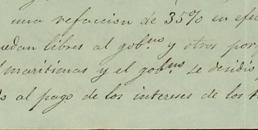 una refaccion de 35% en efec
uedan libres al gob.no y otros por
maritimas y el gob.no se decidio
al pago de los intereses de los